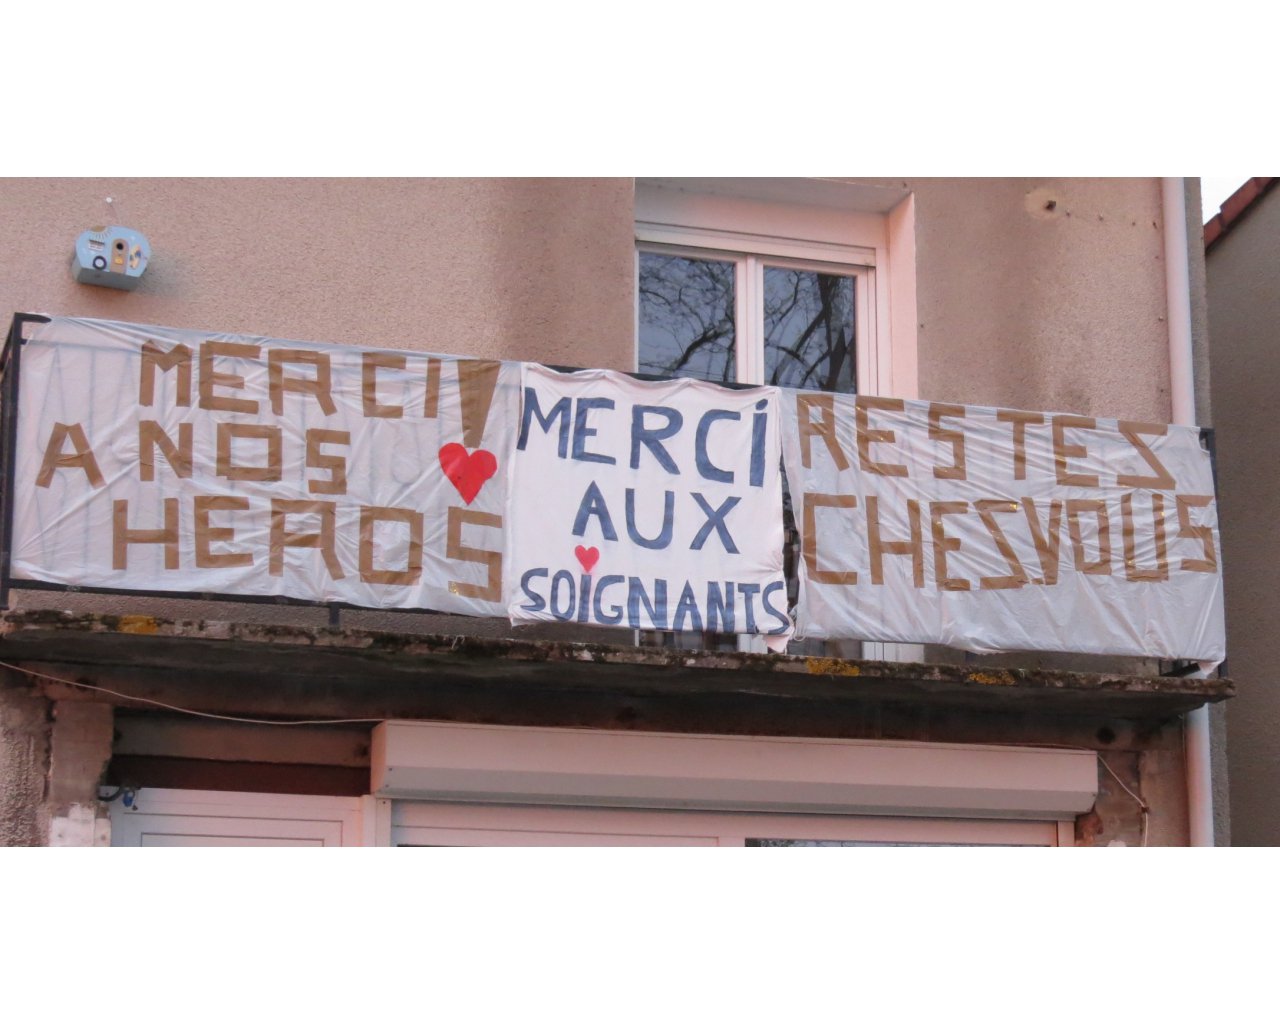 MERCI!
A NOS
HEROS
MERCi
AUX
SOiGNANTS
RESTEZ
CHEZ VOUS